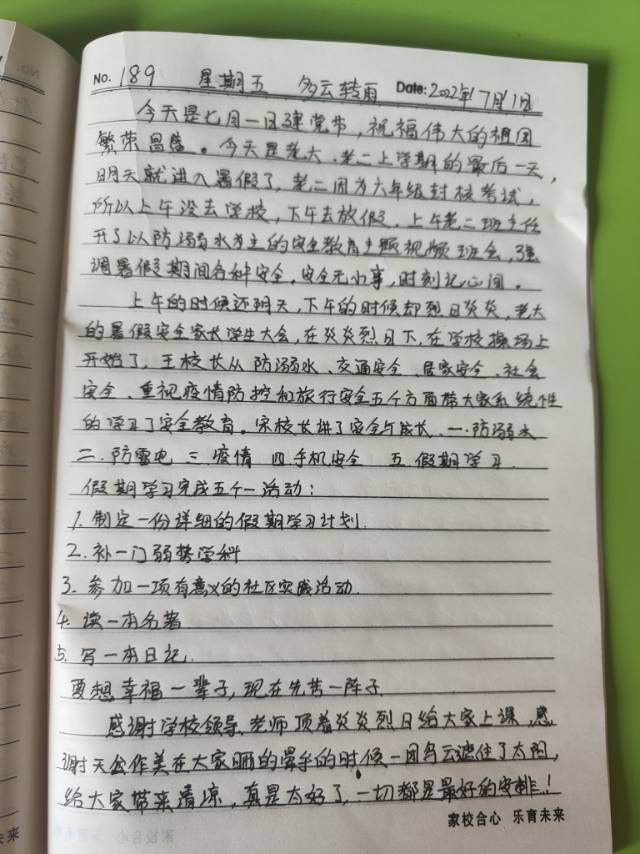 No. 189 星期五 多云转雨 Date: 2022年7月1日
今天是七月一日建党节，祝福伟大的祖国
繁荣昌盛。今天是老大、老二上学期的最后一天，
明天就进入暑假了，老二因为六年级封校考试，
所以上午没去学校，下午去放假，上午老二班主任
开了以防溺水为主的安全教育专题视频班会，强
调暑假期间各种安全，安全无小事，时刻记心间。
上午的时候还阴天，下午的时候却烈日炎炎，老大
的暑假安全家长学生大会，在炎炎烈日下，在学校操场上
开始了，王校长从防溺水、交通安全、居家安全、社会
安全、重视疫情防控和旅行安全五个方面带大家系统性
的学习了安全教育。宋校长讲了安全与成长、一.防溺水
二.防雷电 三.疫情 四.手机安全 五.假期学习.
假期学习完成五个一活动：
1.制定一份详细的假期学习计划.
2.补一门弱势学科
3.参加一项有意义的社区实践活动.
4.读一本名著
5.写一本日记.
要想幸福一辈子，现在先苦一阵子.
感谢学校领导、老师顶着炎炎烈日给大家上课，感
谢天公作美在大家晒的晕乎的时候一团乌云遮住了太阳，
给大家带来清凉，真是太好了，一切都是最好的安排！
家校合心 乐育未来